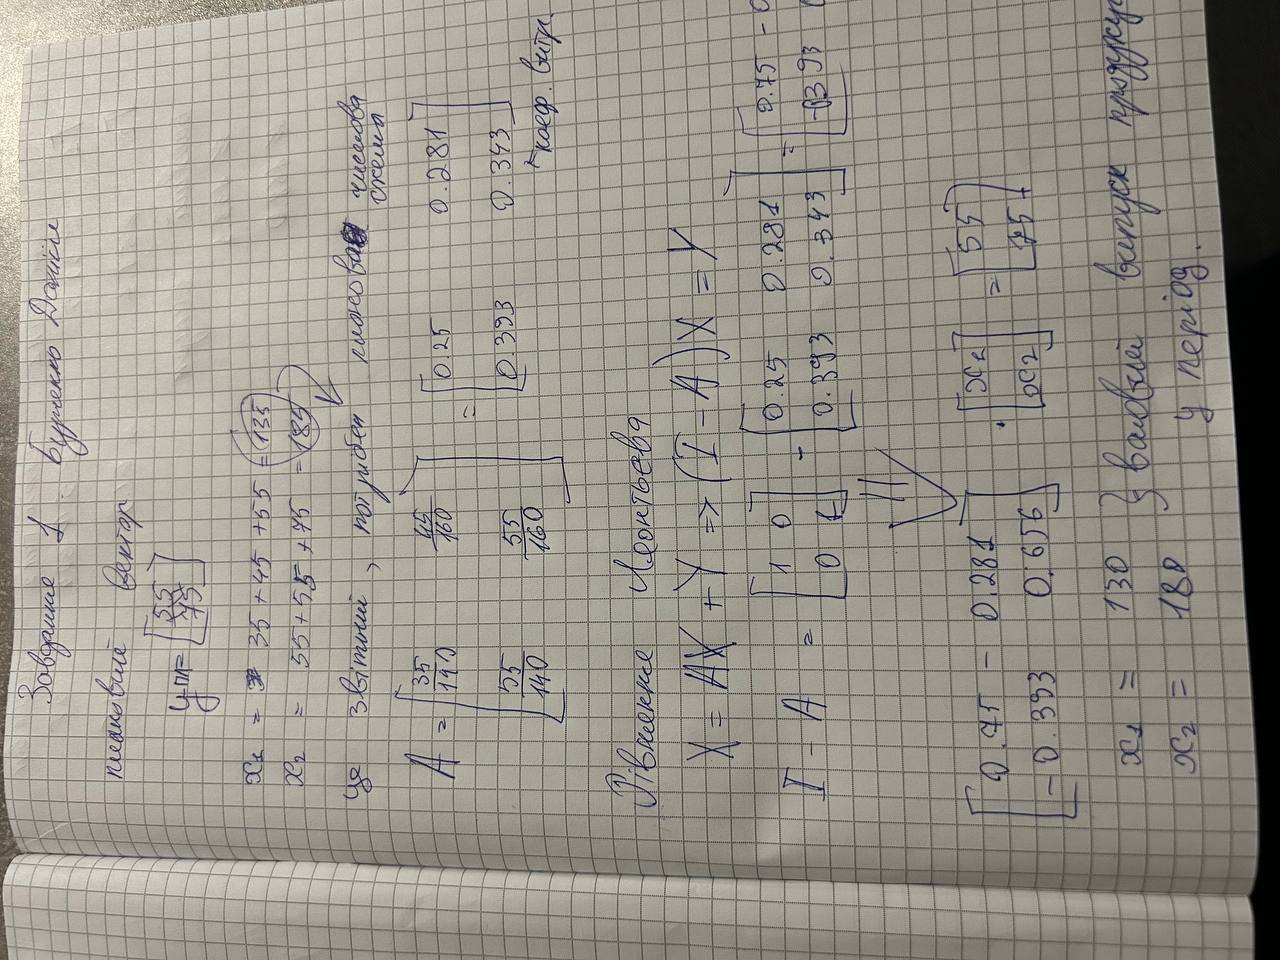 Завдання 1. Бурченко Даніїл
плановий вектор
yпл = [55 75]
x₁ = 35 + 45 + 55 = 135
x₂ = 55 + 55 + 75 = 185
це звітний, потрібен планова числова схема
A = [35/140 45/160 55/140 55/160] = [0.25 0.281 0.393 0.343]
коеф. витр
Рівняння Леонтьєва
X = AX + Y => (I - A)X = Y
I - A = [1 0 0 1] - [0.25 0.281 0.393 0.343] = [0.75 - 0 -0.393 0
[0.75 - 0.281 -0.393 0.656] · [x₁ x₂] = [55 75]
x₁ = 130 } валовий випуск продукц
x₂ = 188 у період.